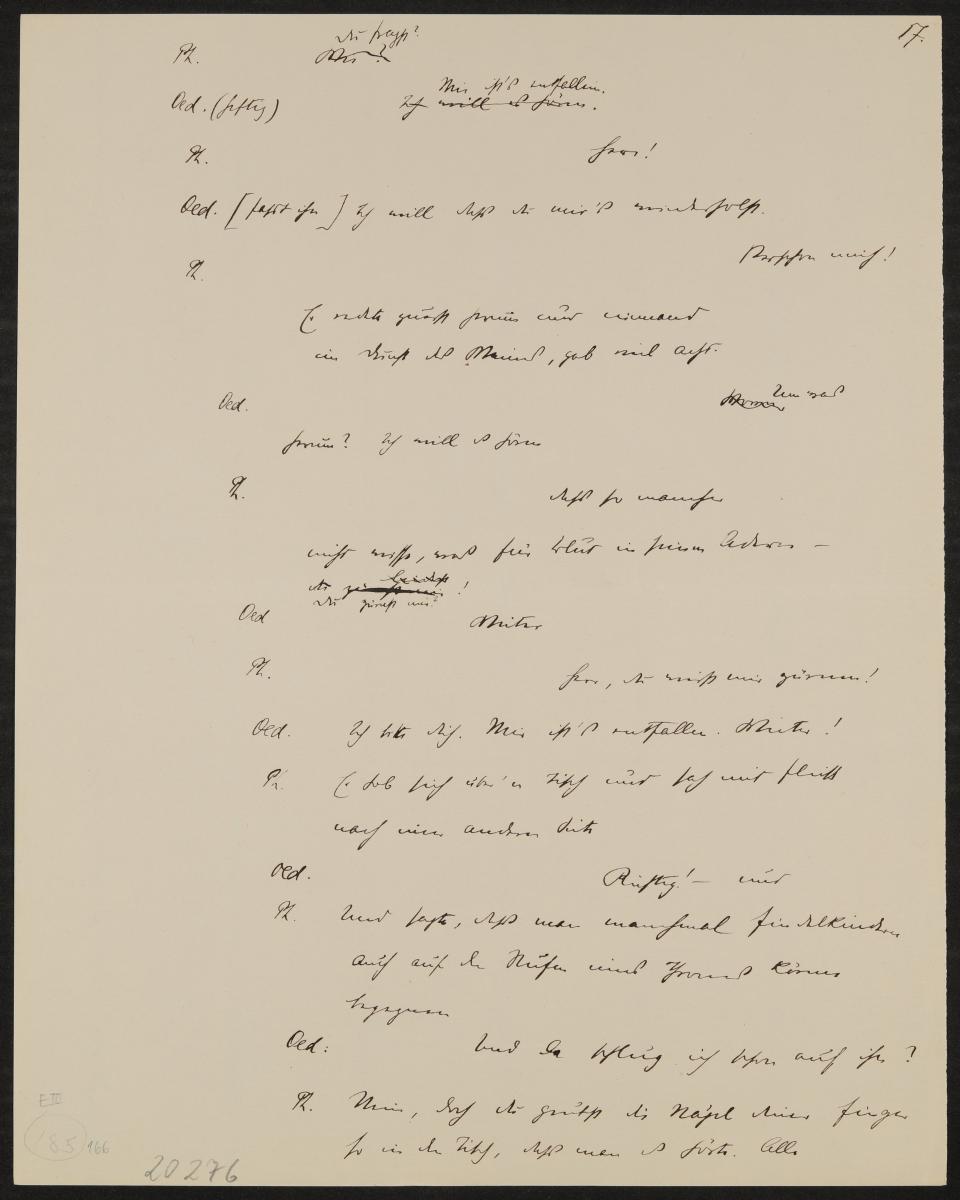 17.
Du fragst?
Ph. Was?
Mir ist's entfallen.
Oed. (heftig) Ich will es hören.
Ph. Herr!
Oed. [fasst ihn] Ich will dass du mir's wiederholst.
Verschon mich!
Ph.
Er redete zuerst herum und niemand
im Dunst des Weines, gab viel acht.
Oed. Um was
herum? Ich will es hören
Ph. dass so mancher
nicht wisse, was für Blut in seinen Adern –
du !
Du zürnst mir?
Oed Weiter
Ph. Herr, du wirst mir zürnen!
Oed. Ich bitte dich. Mir ist's entfallen. Weiter!
Ph. Er hob sich über'n Tisch und sah mit Fleiss
nach einer anderen Seite
Oed. Richtig! – und
Ph. Und sagte, dass man manchmal Findelkindern
auch auf den Stufen eines Thrones könne
begegnen
Oed: Und da schlug ich schon auf ihn?
Ph. Nein, doch du grubst die Nägel deiner Finger
so in den Tisch, dass man es hörte. Alle
E III
185 166
20276